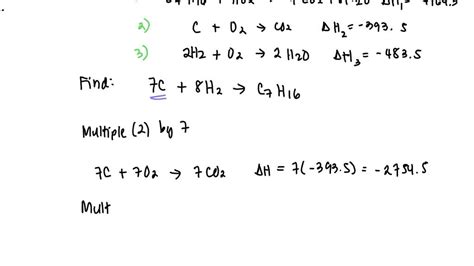 2) C + O₂ → CO₂ ΔH₂ = -393.5
3) 2H₂ + O₂ → 2H₂O ΔH₃ = -483.5
Find: 7C + 8H₂ → C₇H₁₆
Multiple (2) by 7
7C + 7O₂ → 7CO₂ ΔH = 7(-393.5) = -2754.5
Mult